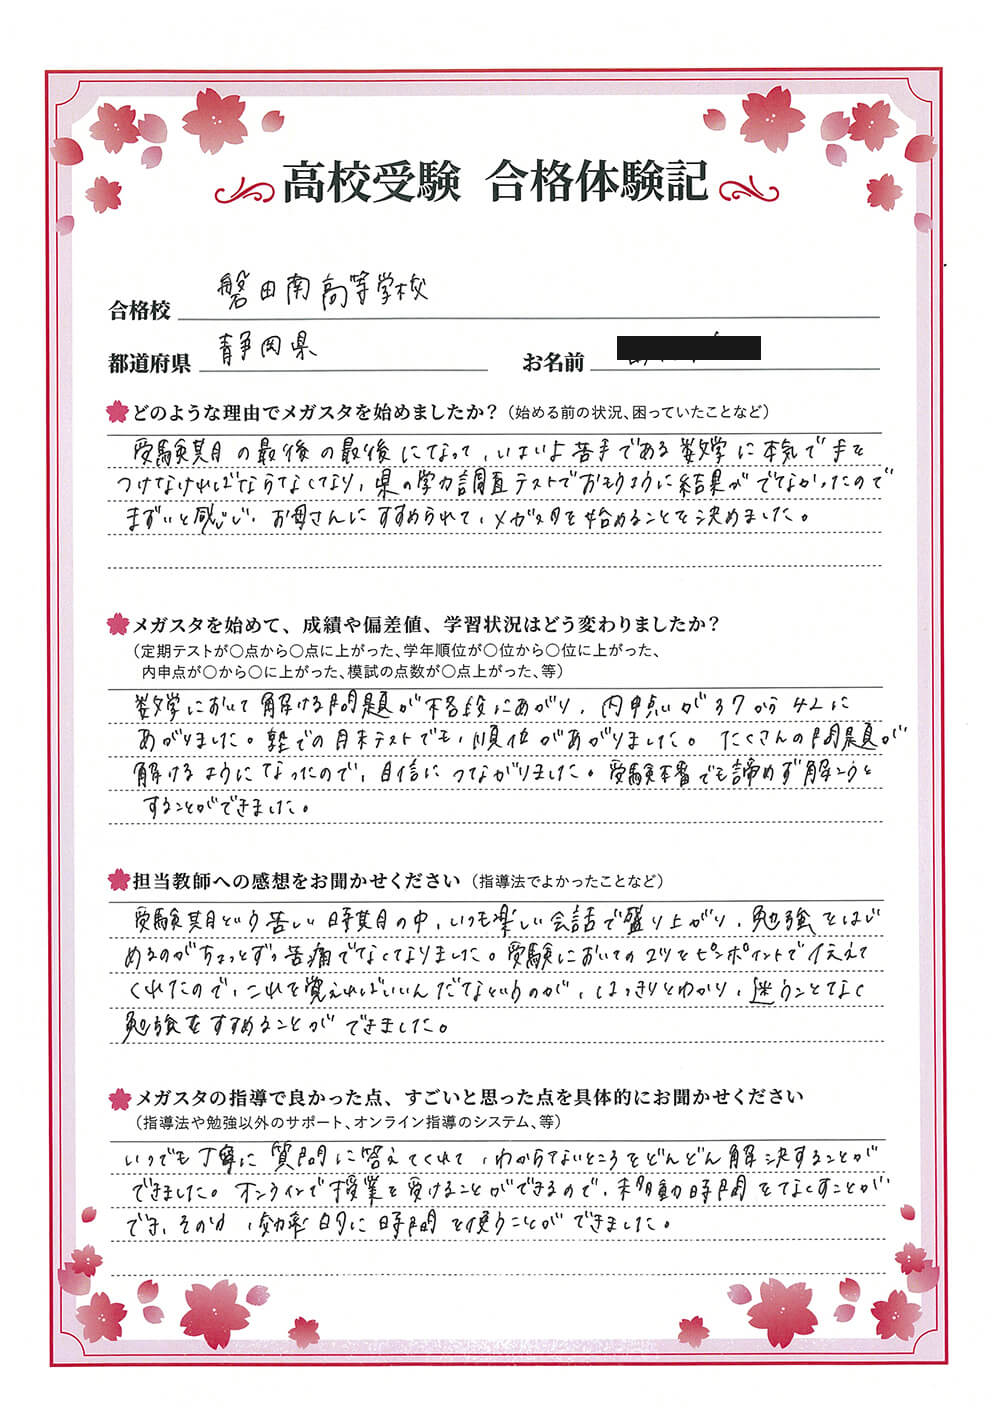 高校受験 合格体験記
合格校 磐田南高等学校
都道府県 静岡県 お名前
どのような理由でメガスタを始めましたか？（始める前の状況、困っていたことなど）
受験期の最後の最後になって、いよいよ苦手である数学に本気で手を
つけなければならなくなり、県の学力調査テストでおもうように結果がでなかったので
まずいと感じ、お母さんにすすめられて、メガスタを始めることを決めました。
メガスタを始めて、成績や偏差値、学習状況はどう変わりましたか？
（定期テストが〇点から〇点に上がった、学年順位が〇位から〇位に上がった、
内申点が〇から〇に上がった、模試の点数が〇点上がった、等）
数学において解ける問題が格段にあがり、内申点が37から42に
あがりました。塾での月末テストでも、順位があがりました。たくさんの問題が
解けるようになったので、自信につながりました。受験本番でも諦めず解こうと
することができました。
担当教師への感想をお聞かせください（指導法でよかったことなど）
受験期という苦しい時期の中、いつも楽しい会話で盛り上がり、勉強をはじ
めるのがちょっとずつ苦痛でなくなりました。受験においてのコツをピンポイントで伝えて
くれたので、これを覚えればいいんだなというのが、はっきりとわかり、迷うことなく
勉強をすすめることができました。
メガスタの指導で良かった点、すごいと思った点を具体的にお聞かせください
（指導法や勉強以外のサポート、オンライン指導のシステム、等）
いつでも丁寧に質問に答えてくれて、わからないところをどんどん解決することが
できました。オンラインで授業を受けることができるので、移動時間をなくすことが
でき、その分、効率的に時間を使うことができました。